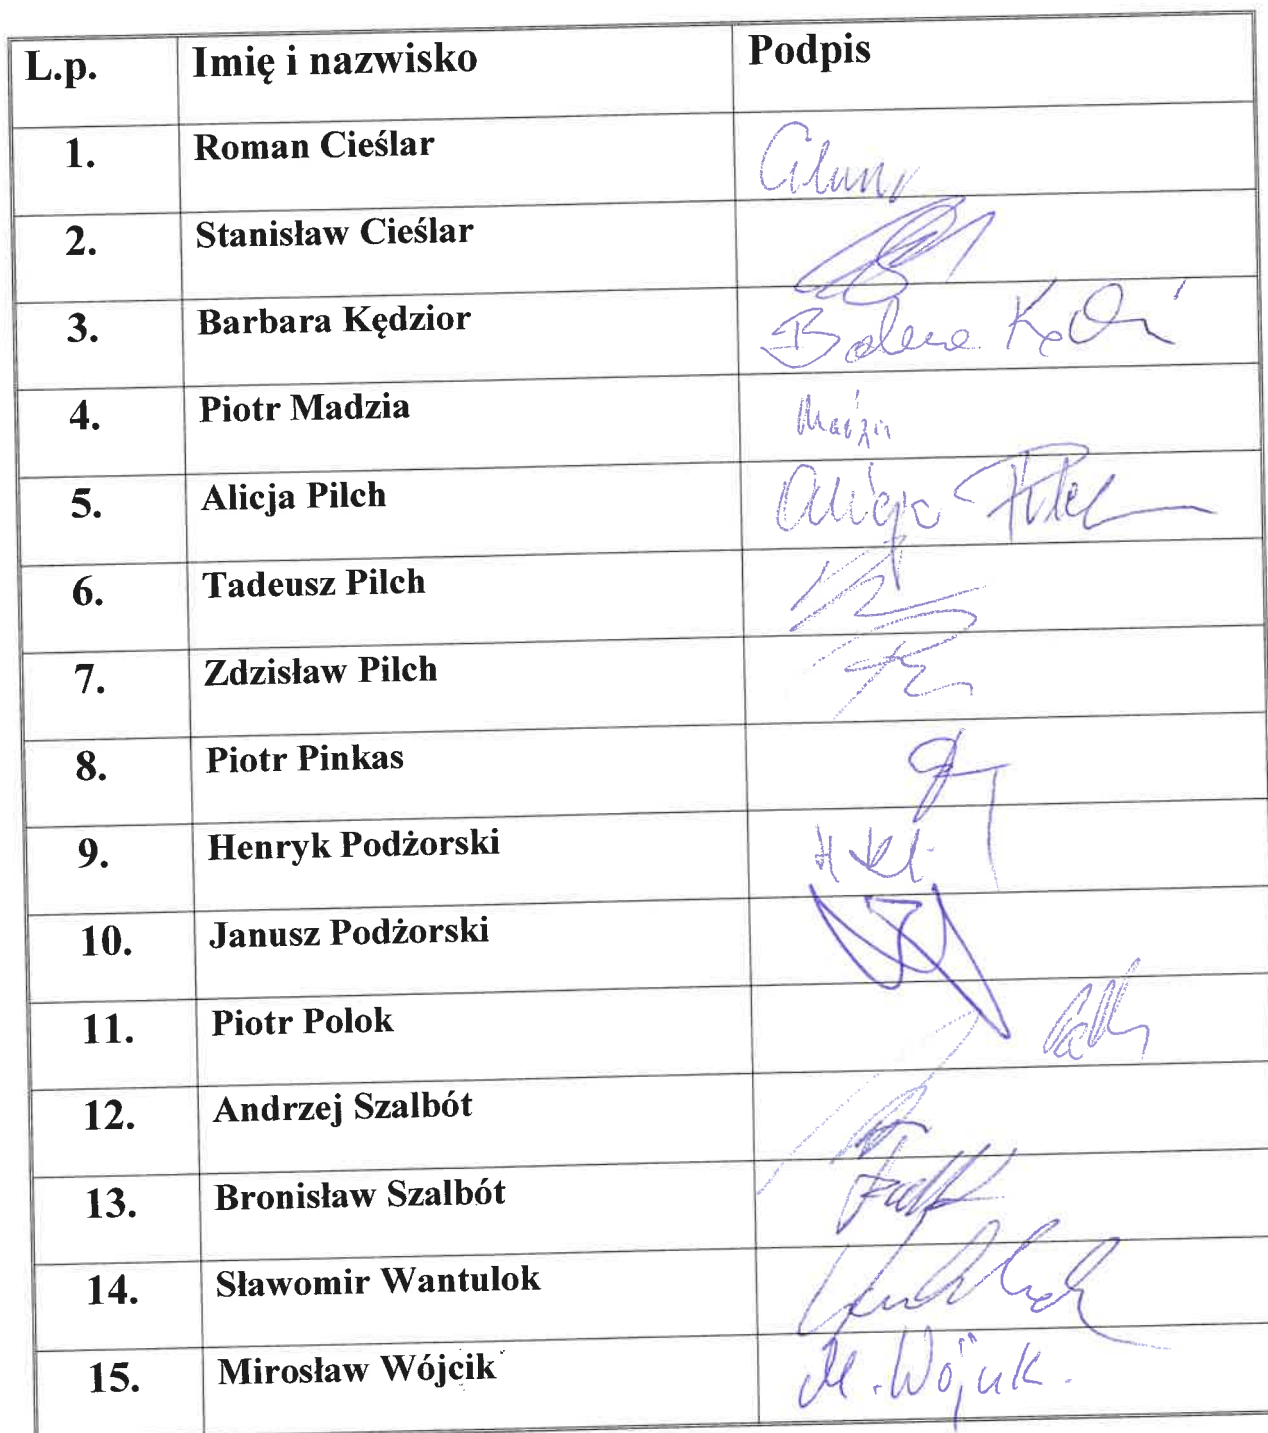 L.p. Imię i nazwisko Podpis
1. Roman Cieślar
2. Stanisław Cieślar
3. Barbara Kędzior
4. Piotr Madzia
5. Alicja Pilch Alicja Pilch
6. Tadeusz Pilch
7. Zdzisław Pilch
8. Piotr Pinkas
9. Henryk Podżorski
10. Janusz Podżorski
11. Piotr Polok
12. Andrzej Szalbót
13. Bronisław Szalbót
14. Sławomir Wantulok
15. Mirosław Wójcik M. Wójcik.